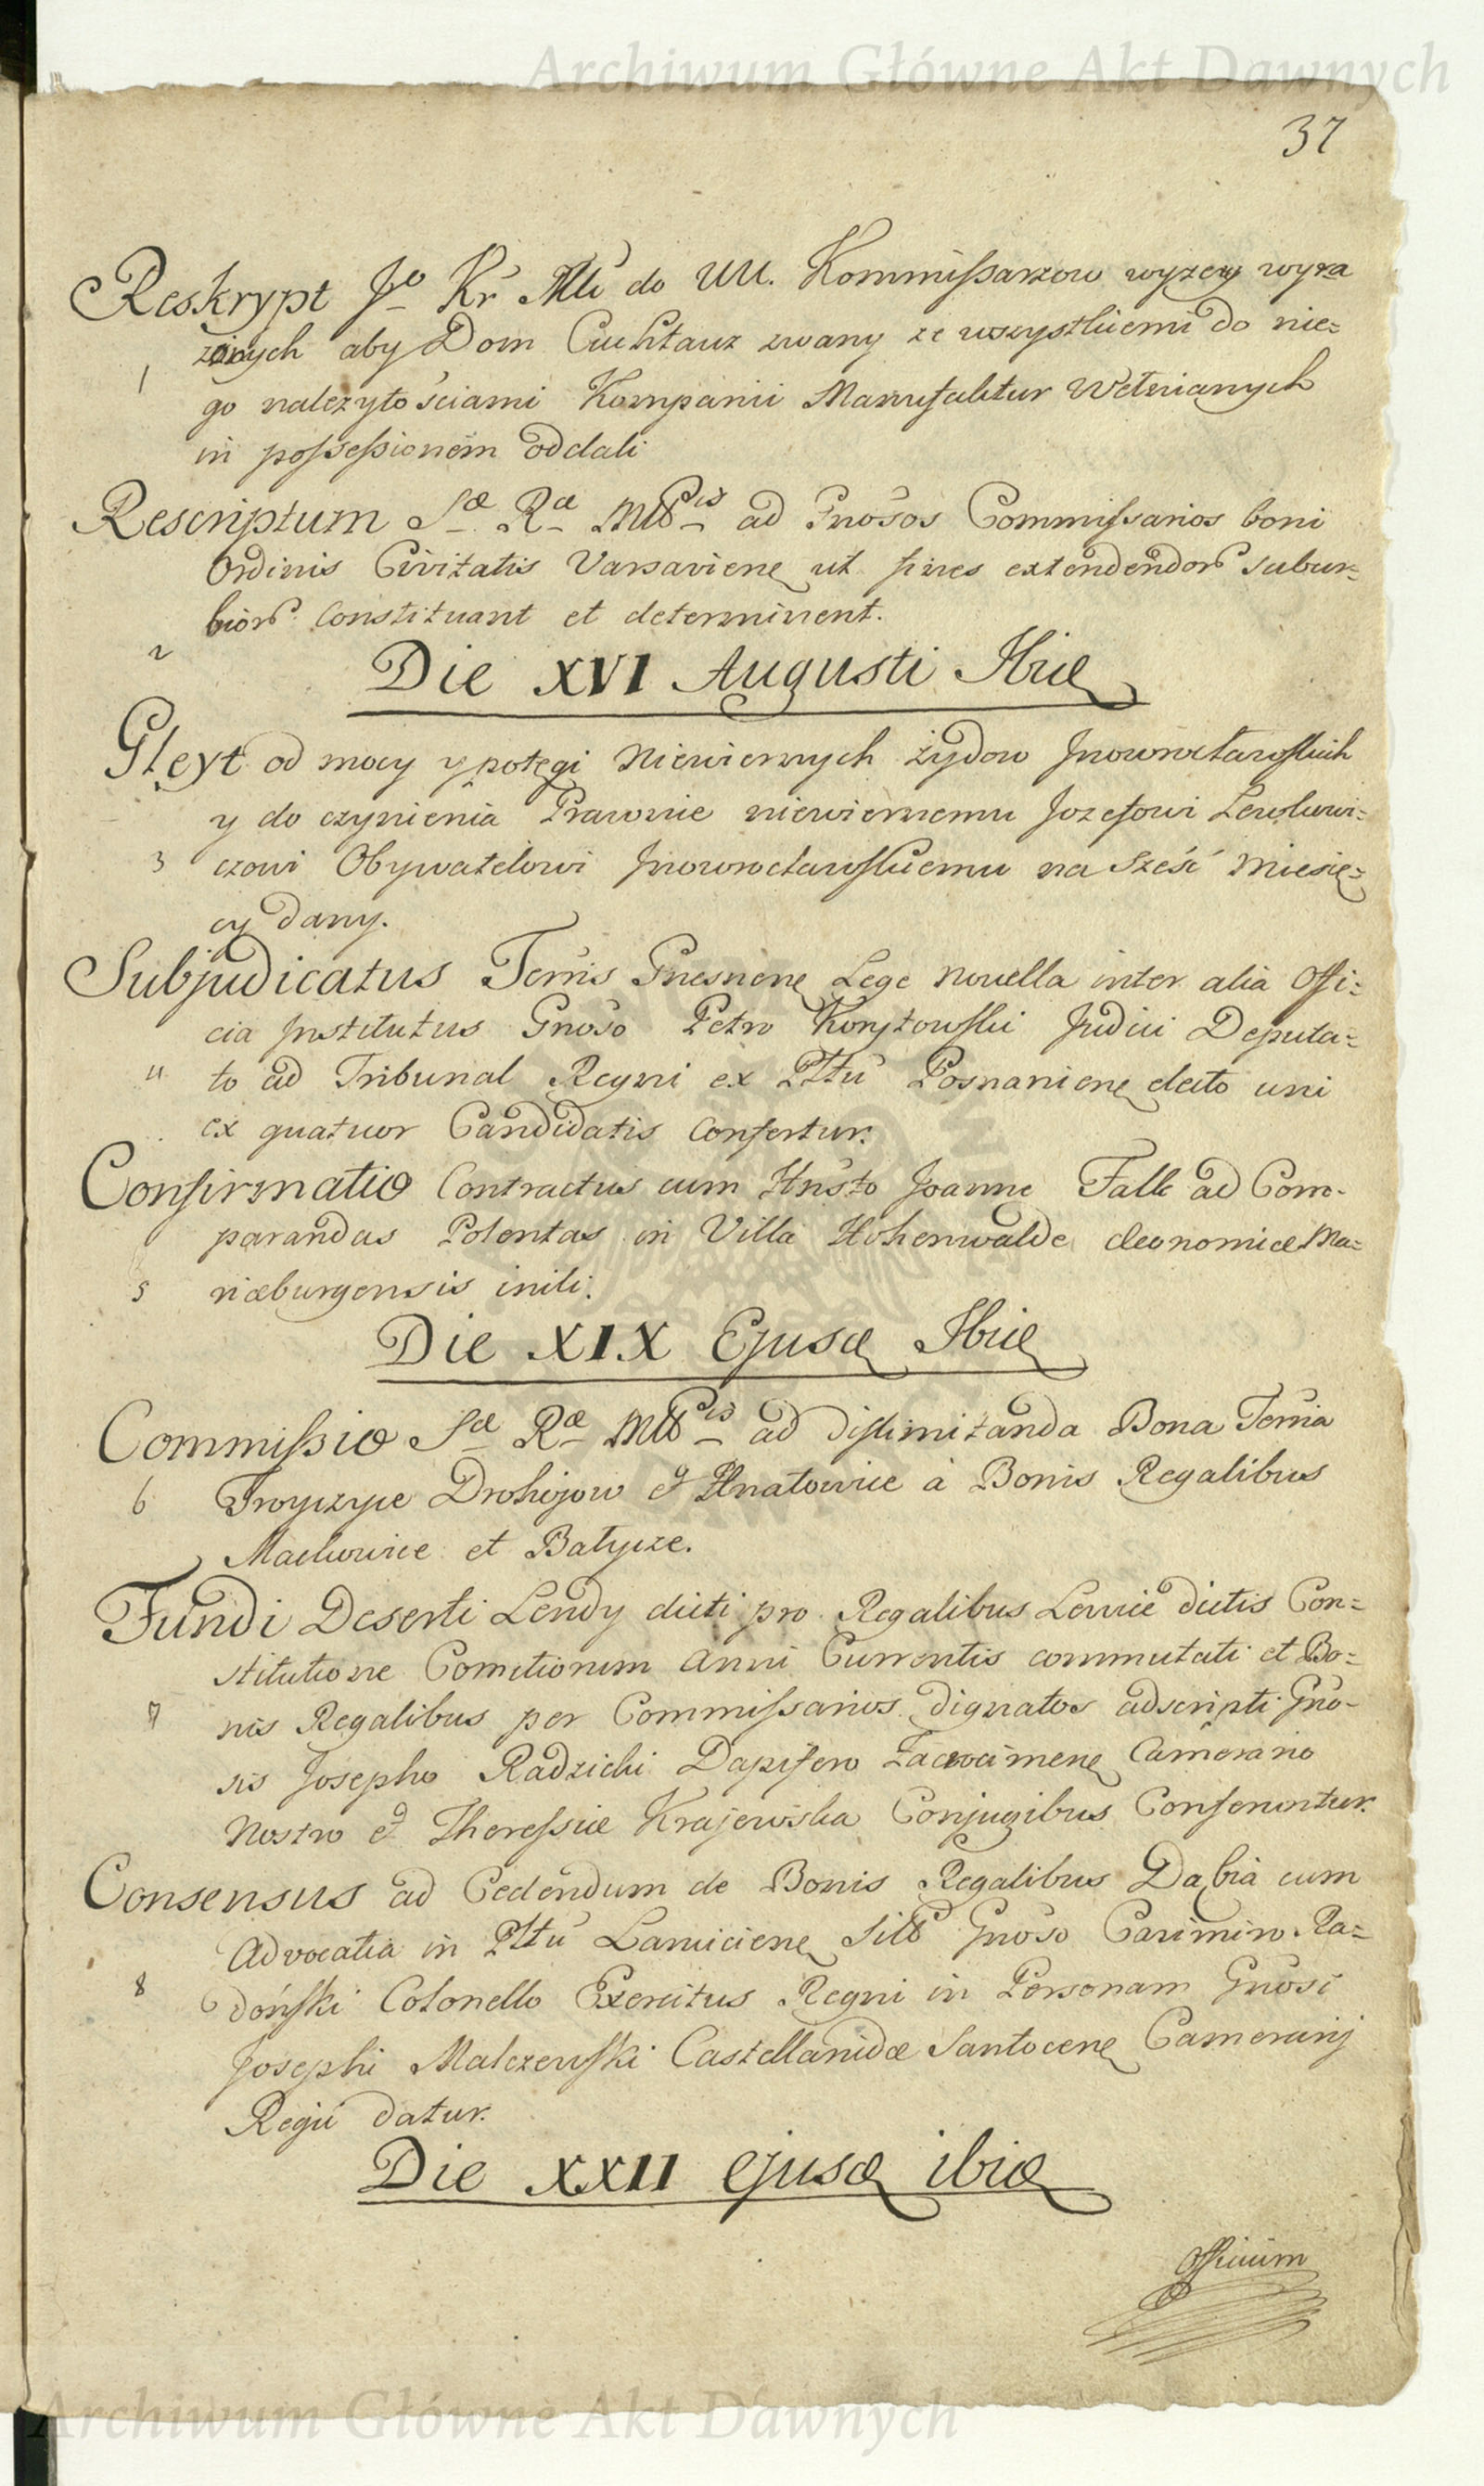 Archiwum Główne Akt Dawnych
37
Reskrypt Jo Kr Mci do UU. Kommissarzow wyzey wyra
zonych aby Dom Cuchtauz zwany ze wszystkiemi do nie=
1 go nalezytościami Kompanii Manufaktur Wełnianych
in possessionem oddali
Rescriptum Sæ Ræ Mttis ad Gnosos Commissarios boni
Ordinis Civitatis Varsaviene ut fines extendendor subur=
bior constituant et determinent.
2
Die XVI Augusti Ibid
Gleyt od mocy y potęgi Niewiernych żydow Jnowrocławskich
y do czynienia Prawnie niewiernemu Jozefowi Lewkowi=
3 czowi Obywatelowi Jnowrocławskiemu na Sześć Miesię=
cy dany.
Subjudicatus Terris Gnesnene Lege novella inter alia Offi=
cia Jnstitutus Gnoso Petro Korytowski Judici Deputa=
4 to ad Tribunal Regni ex Plttu Posnaniene elcto uni
ex quatuor Candidatis confertur.
Confirmatio Contractus cum Hnsto Joanne Falk ad Com-
parandas Polentas in Villa Hohenwalde Œconomiæ Ma=
5 riæburgensis initi.
Die XIX Ejusd Ibid
Commissio Sæ Ræ Mttis ad dislimitanda Bona Terria
6 Troyczyce Drohojow et Hnatowice à Bonis Regalibus
Mackowice et Batycze.
Fundi Deserti Lendy dicti pro Regalibus Lewice dictis Con=
stitutione Comitiorum Anni Currentis commutati et Bo=
7 nis Regalibus per Commissarios dignatos adscripti Gno-
sis Josepho Radzicki Dapifero Zacrocimene Camerario
Nostro et Theressiæ Krajewska Conjugibus Conferuntur.
Consensus ad Cedendum de Bonis Regalibus Dąbia cum
Advocatia in Plttu Lanciciene Sitis Gnoso Casimiro Ra=
8 doński Colonello Exercitus Regni in Personam Gnosi
Josephi Malczewski Castellanidæ Santocene Camerarij
Regii datur.
Die XXII ejusd ibid
Officium
Archiwum Główne Akt Dawnych